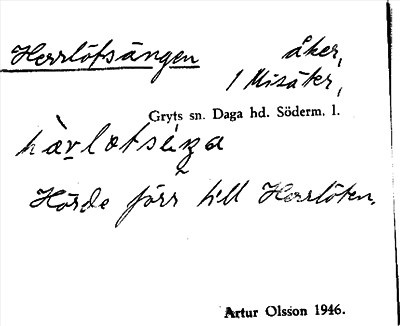 Herrlötsängen åker,
1 Misäter,
Gryts sn. Daga hd. Söderm. l.
Hörde förr till Herrlöten.
Artur Olsson 1946.